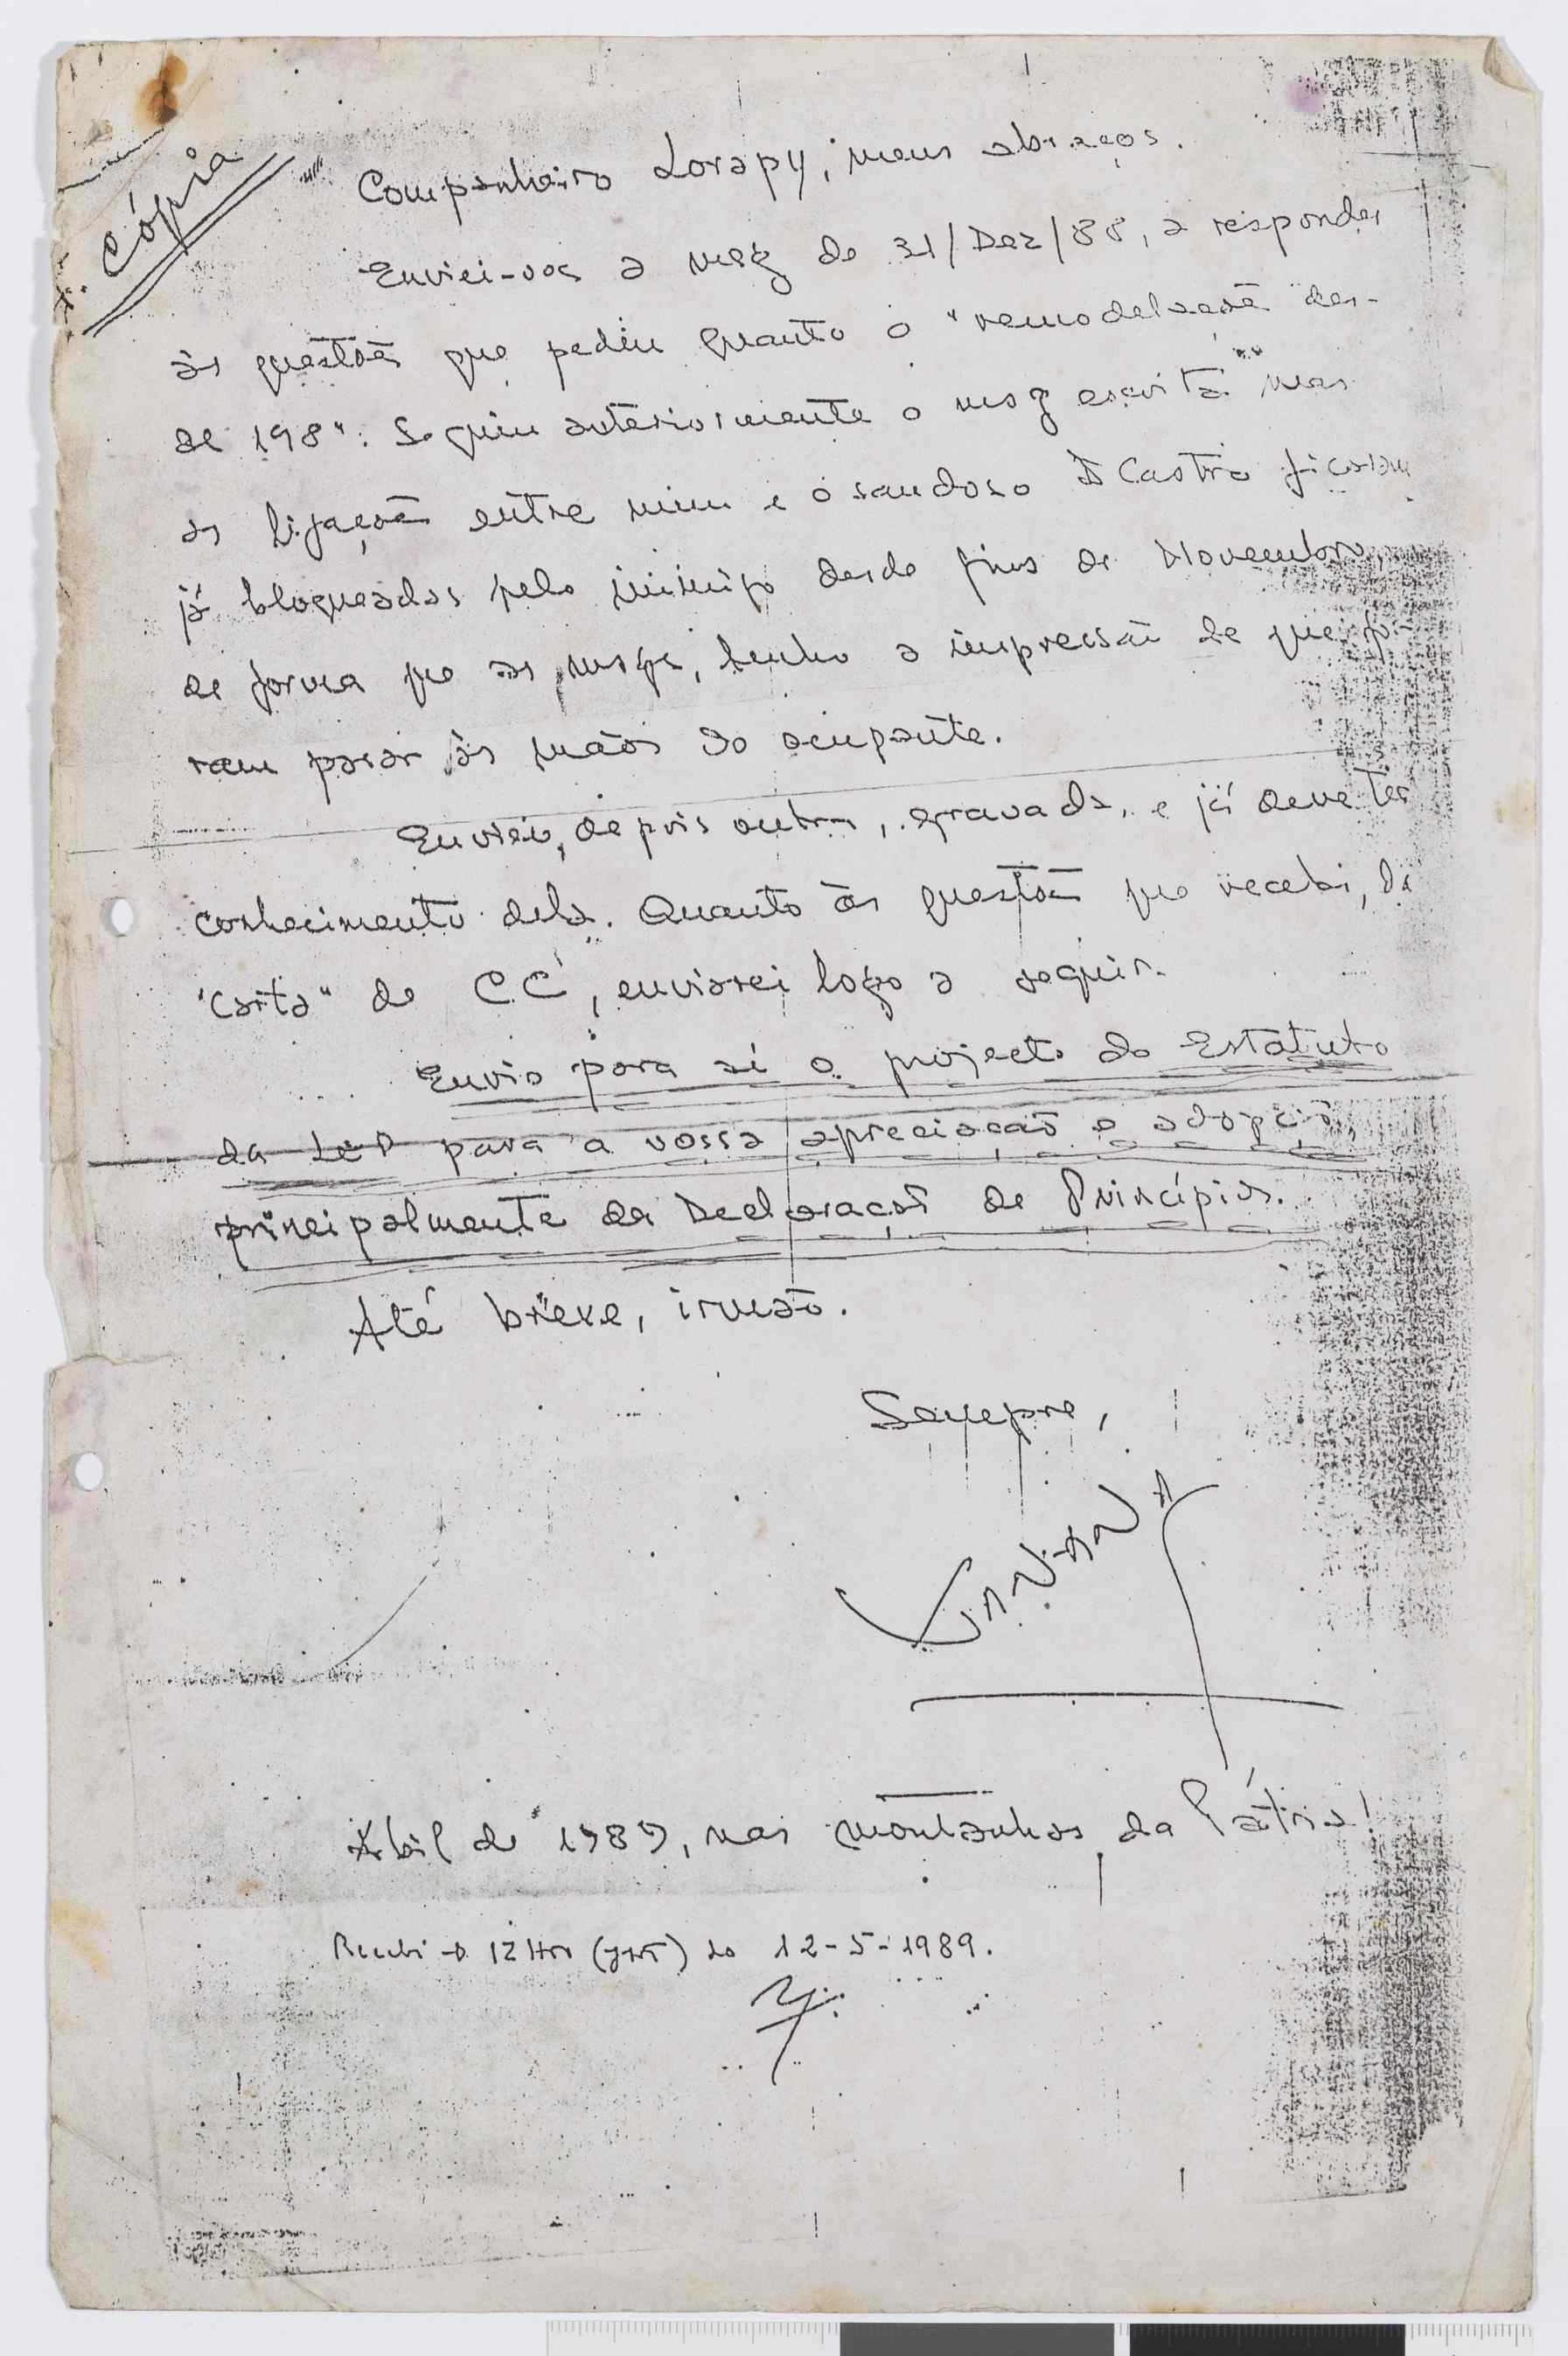 cópia
Companheiro Lorapy, meus abraços.
Enviei-vos a msg de 31/Dez/88, a responder
às questões que pediu quanto o "remodelação des-
de 198". Seguiu anteriormente o msg escrita mas
as ligações entre mim e o saudoso D Castro ficaram
já bloqueadas pelo inimigo desde fins de Novembro,
de forma que as msgs, tenho a impressão de que fo-
ram parar às mãos do ocupante.
Enviei, depois outra, gravada, e já deve ter
conhecimento dela. Quanto às questões que recebi, da
"Carta" de CC, enviarei logo a seguir.
Envio para si o projecto do Estatuto
da para a vossa apreciação e adopção,
principalmente da Declaração de Princípios.
Até breve, irmão.
Sempre,
Abril de 1989, nas montanhas da Pátria!
Recebi 12 Hrs do 12-5-1989.